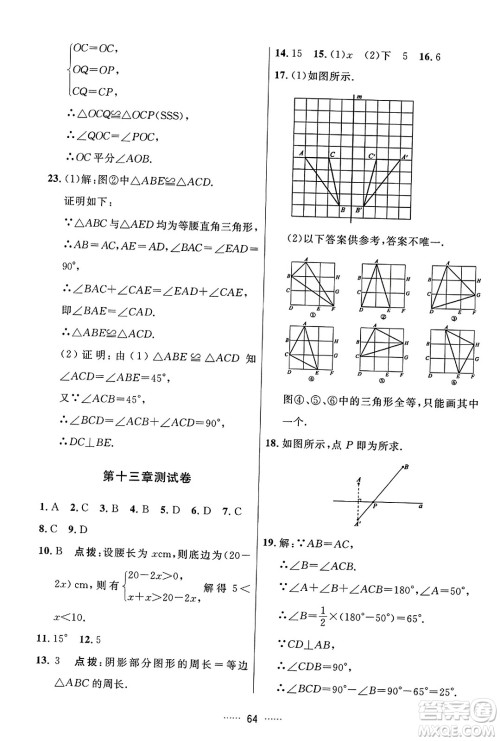 OC=OC,
OQ=OP,
CQ=CP,
∴△OCQ≌△OCP(SSS).
∴∠QOC=∠POC.
∴OC平分∠AOB.
23.(1)解:图②中△ABE≌△ACD.
证明如下:
∵△ABC与△AED均为等腰直角三角形,
∴AB=AC,AE=AD,∠BAC=∠EAD=
90°,
∴∠BAC+∠CAE=∠EAD+∠CAE.
即∠BAE=∠CAD,
∴△ABE≌△ACD.
(2)证明:由(1)△ABE≌△ACD知
∠ACD=∠ABE=45°,
又∵∠ACB=45°,
∴∠BCD=∠ACB+∠ACD=90°,
∴DC⊥BE.
第十三章测试卷
1.A 2.C 3.C 4.D 5.D 6.C 7.C
8.C 9.D
10.B 点拨:设腰长为xcm,则底边为(20-
2x)cm,根据题意得{20-2x>0, x+x>20-2x, 解得5<
x<10.
11.15° 12.5
13.3 点拨:阴影部分图形的周长=等边
△ABC的周长.
14.15 15.(1)x (2)下 5 16.6
17.(1)如图所示.
m
A C C' A'
B B'
(2)以下答案供参考,答案不唯一.
① ② ③
④ ⑤ ⑥
图④、⑤、⑥中的三角形全等,只能画其中
一个.
18.如图所示,点P即为所求.
B
A
P a
A'
19.解:∵AB=AC,
∴∠B=∠ACB.
∵∠B+∠ACB=180°-∠A=180°-50°,
∴∠B=1/2×(180°-50°)=65°.
∵CD⊥AB,
∴∠CDB=90°.
∴∠BCD=90°-∠B=90°-65°=25°.
64